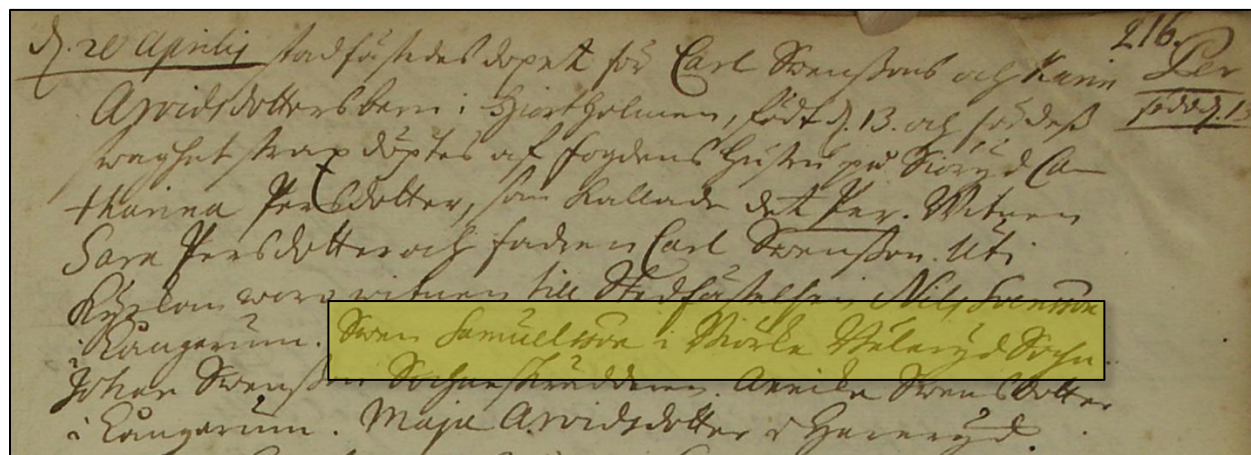 216.
d. 20 Aprilis stadfästedes dopet för Carl Swenssons och Karin
Per
född d. 13
Arvidsdotters barn i Hiortholmen, född d. 13. och för dess
swaghet strax döptes af fogdens hustru på Siöryd Ca-
tharina Persdotter, som kallade det Per. Witnen
Sara Persdotter och fadren Carl Swensson. Uti
Kyrkan woro witnen till Stadfästelsen Nils Svensson
i Långerum. Swen Samuelsson i Mörke Nöleryd Sochn.
Johan Swensson Sochneskräddaren. Annika Swensdotter
i Långerum. Maja Arvidsdotter i Hareryd.